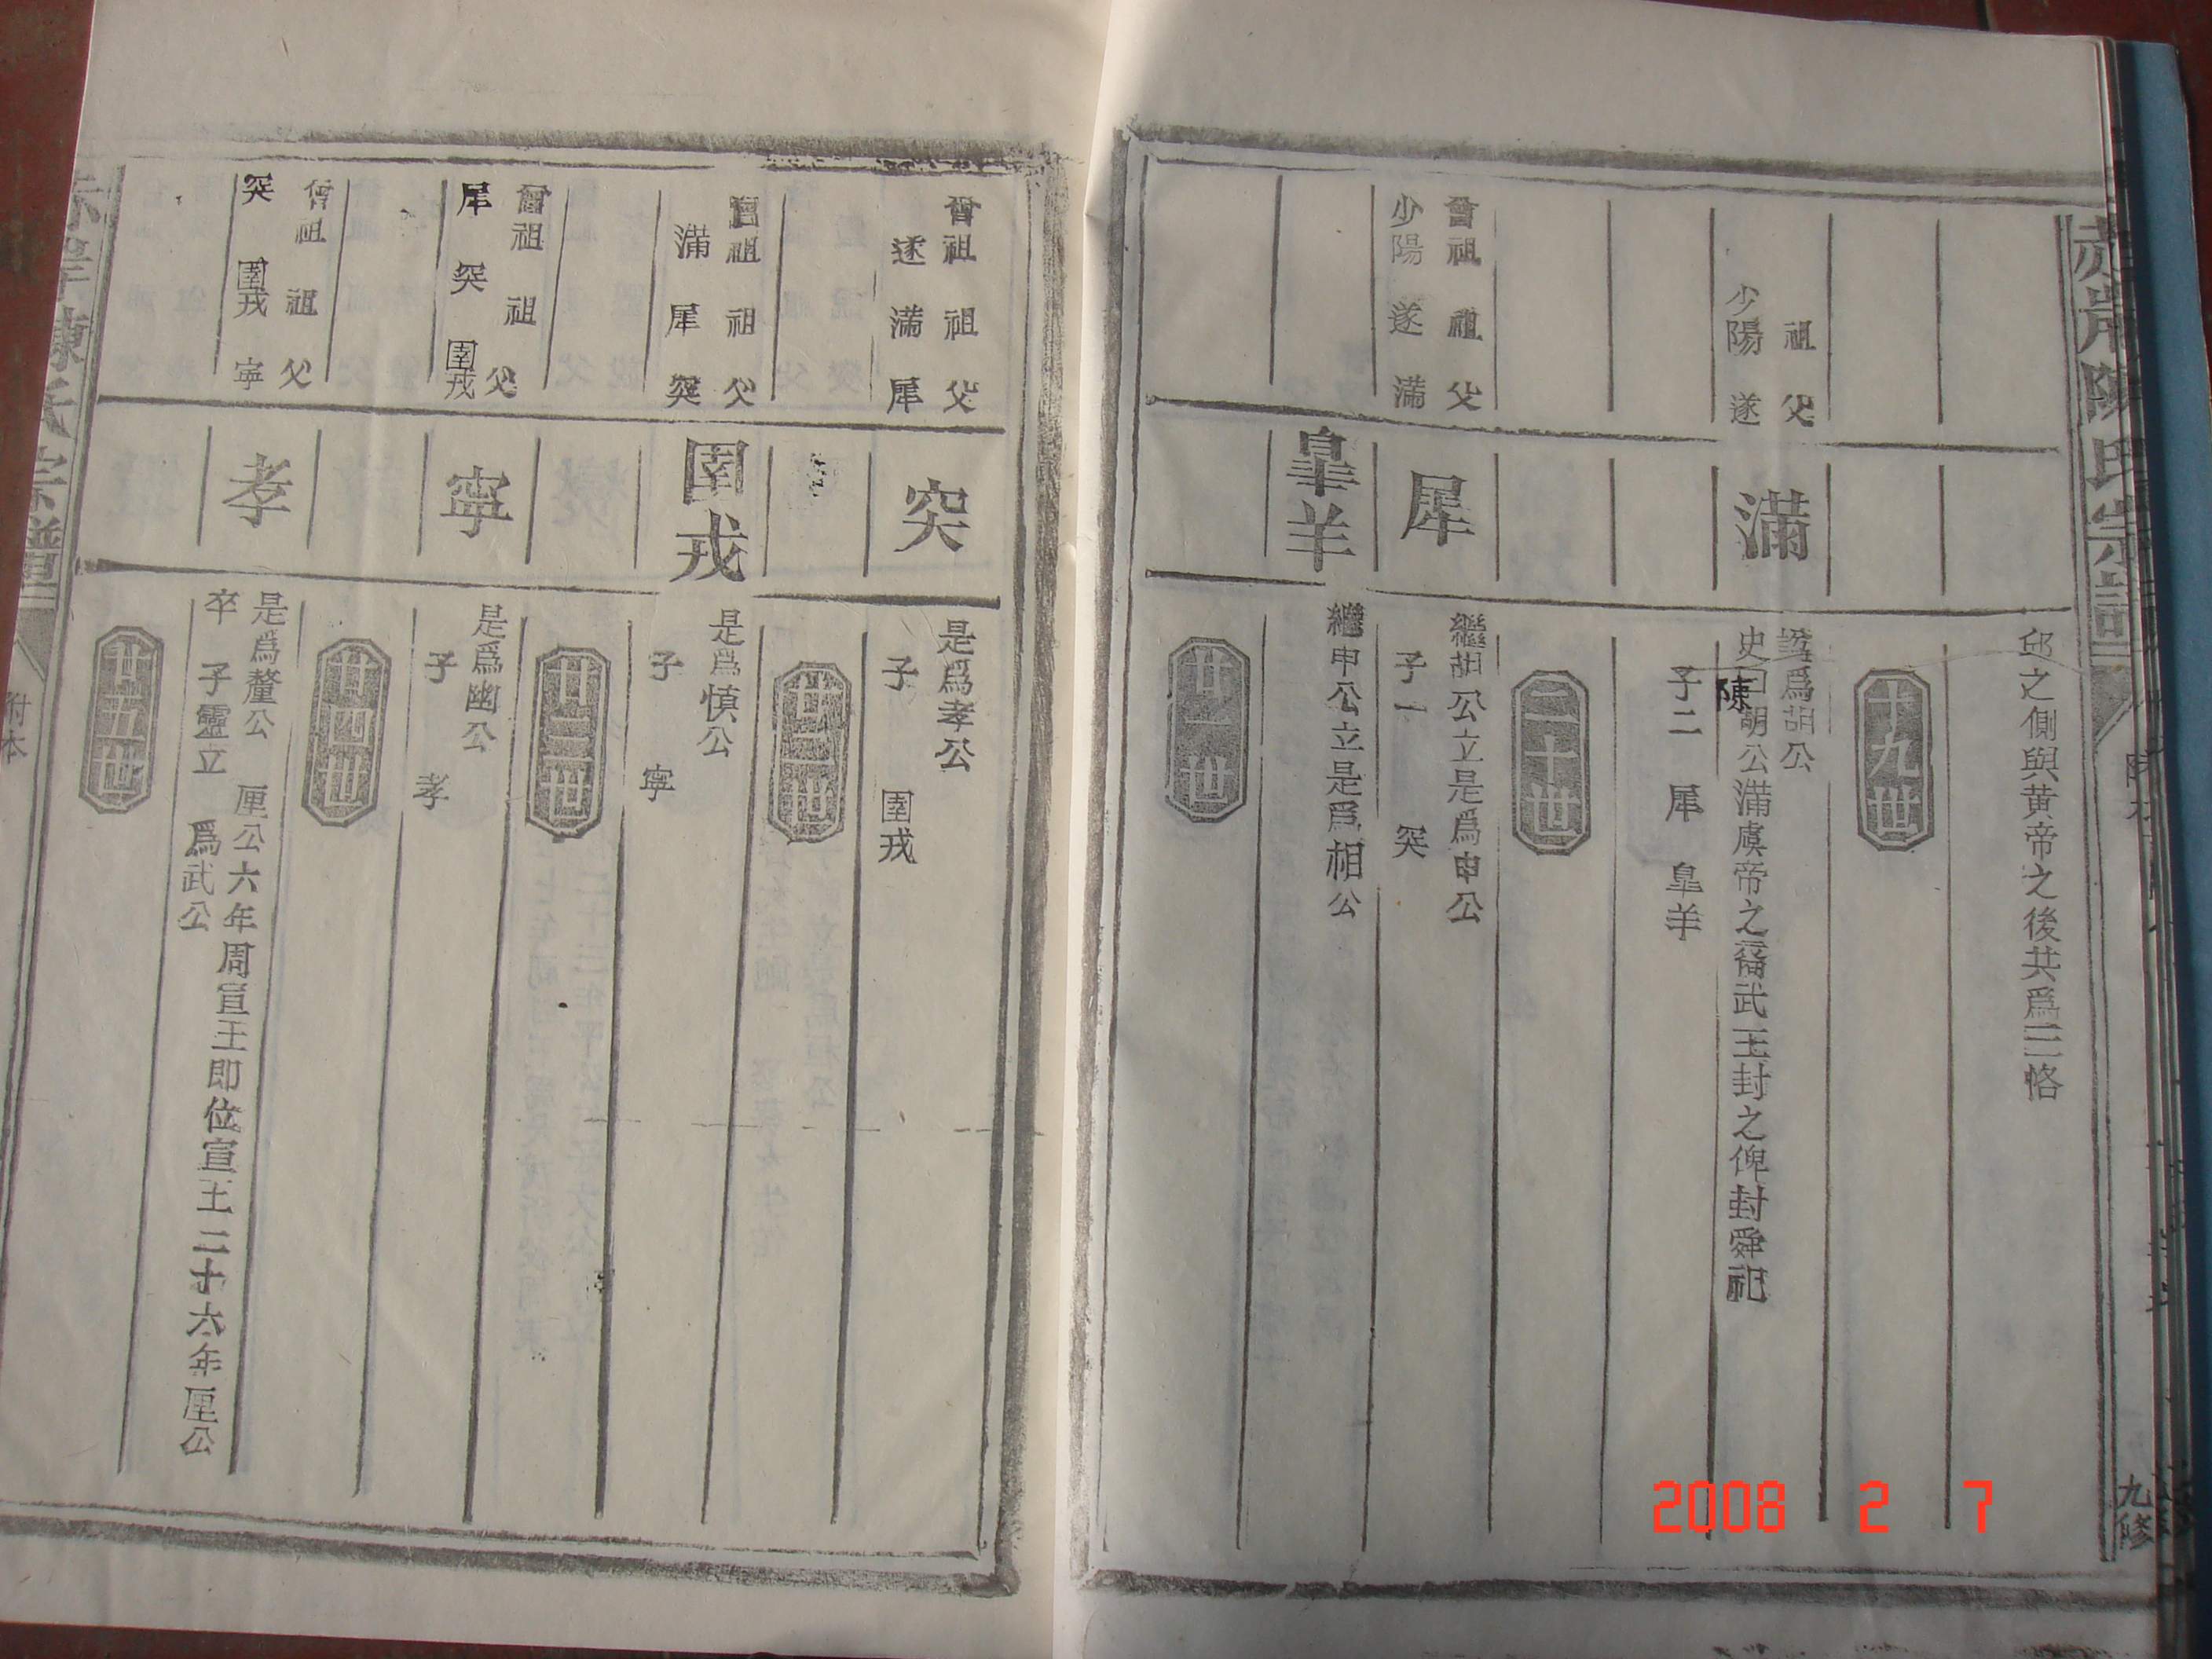 赤岸陳氏宗譜
九修
邱之側與黃帝之後共爲三恪
十九世
祖 父
少陽 遂
滿
諡爲胡公
史曰胡公滿虞帝之裔武王封之俾封舜祀
陳
子二 犀 皐羊
二十世
曾祖 祖 父
少陽 遂 滿
犀
繼胡公立是爲申公
子一 突
皐羊
繼申公立是爲相公
廿一世
曾祖 祖 父
遂 滿 犀
突
是爲孝公
子 圉戎
廿二世
曾祖 祖 父
滿 犀 突
圉戎
是爲慎公
子 寧
廿三世
曾祖 祖 父
犀 突 圉戎
寧
是爲幽公
子 孝
廿四世
曾祖 祖 父
突 圉戎 寧
孝
是爲釐公 厘公六年周宣王即位宣王二十六年厘公
卒 子靈立 爲武公
廿五世
陳氏宗譜
附本
2008 2 7